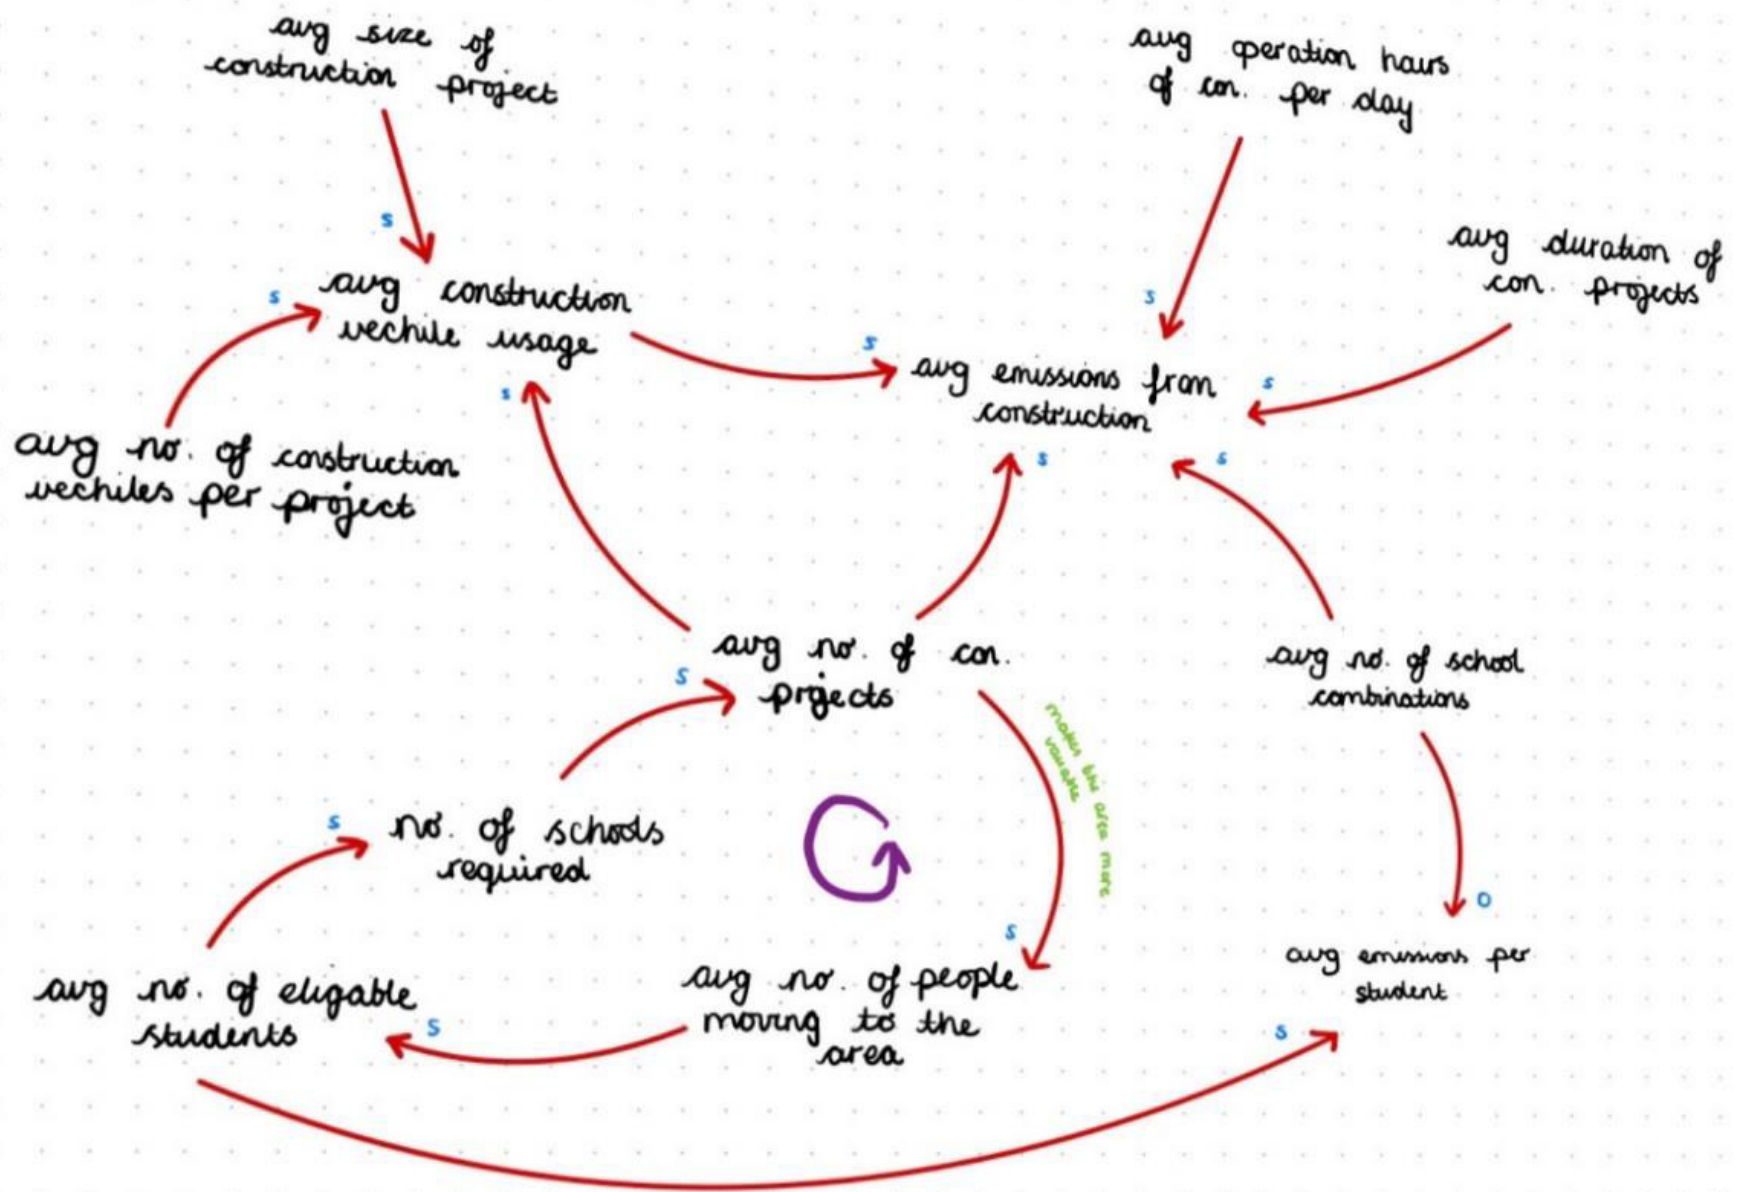 avg size of
construction project
avg operation hours
of con. per day
avg duration of
con. projects
s
s
avg construction
vechile usage
s
s
s
avg emissions from
construction
s
s
avg no. of construction
vechiles per project
s
s
avg no. of con.
projects
s
avg no. of school
combinations
makes the area more
valuable
s
no. of schools
required
s
o
avg no. of eligable
students
s
avg no. of people
moving to the
area
avg emissions per
student
s